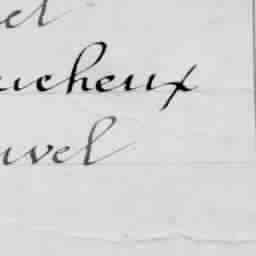 el
ucheux
uvel